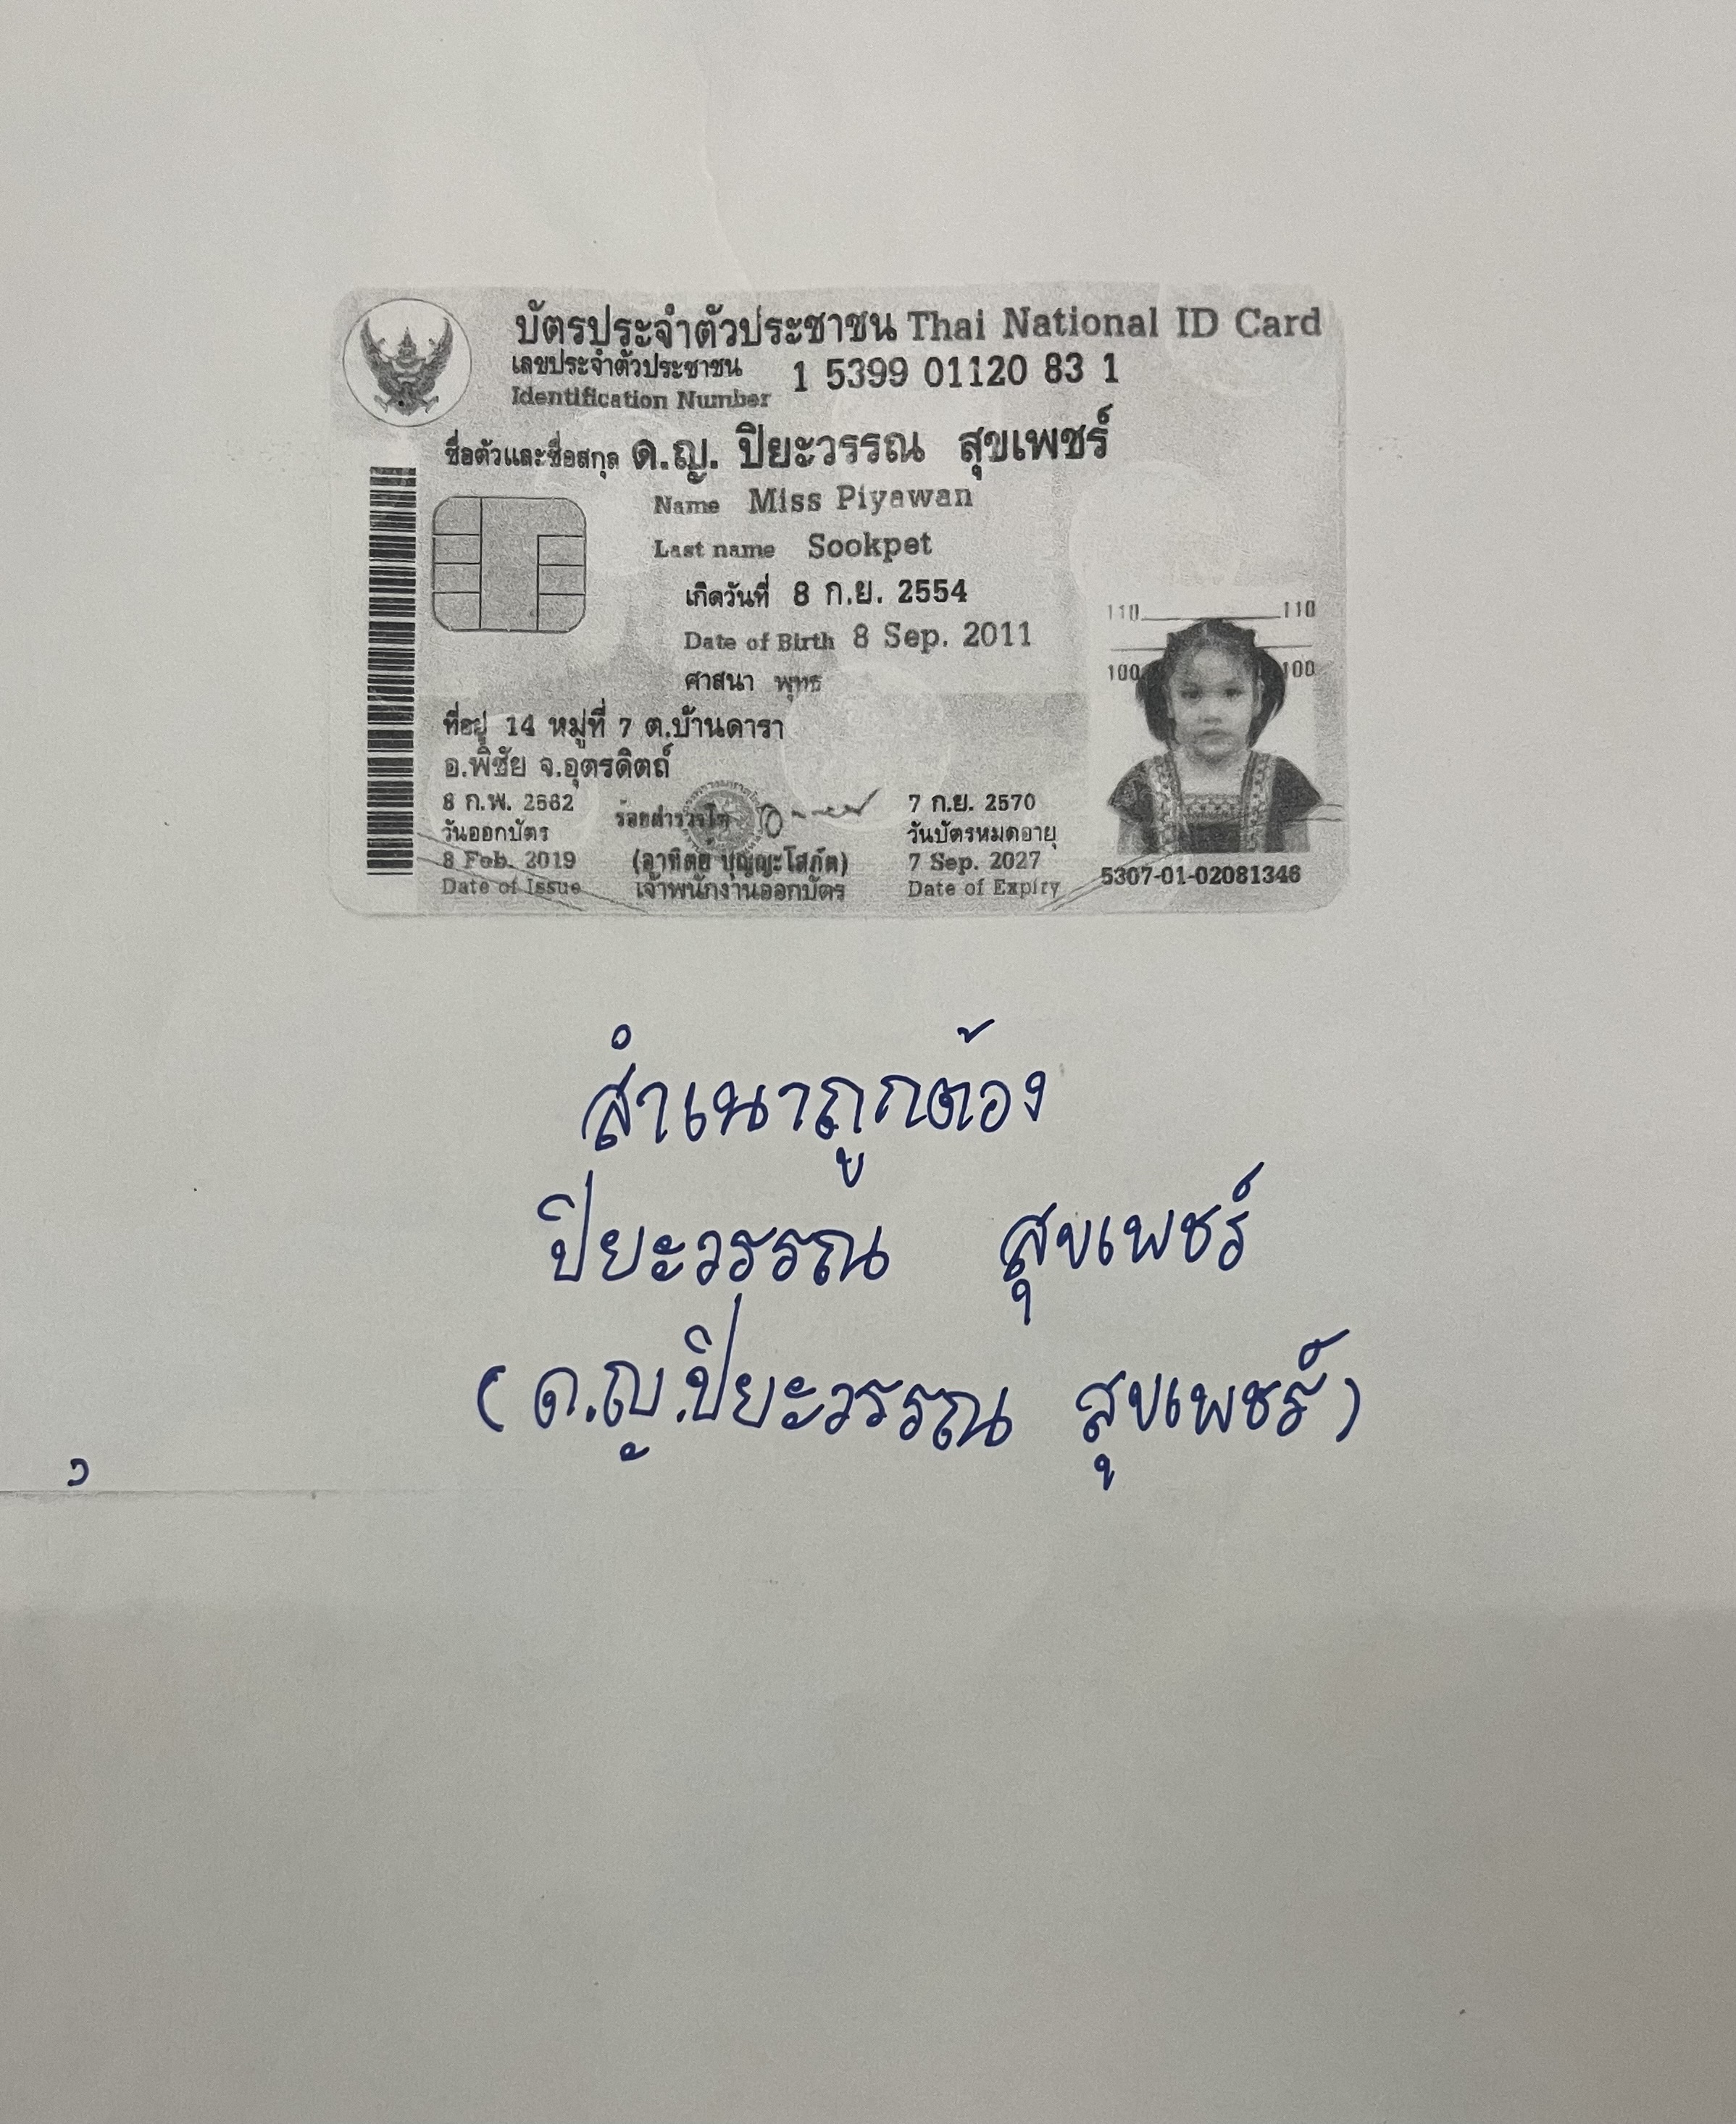 บัตรประจำตัวประชาชน Thai National ID Card
เลขประจำตัวประชาชน
Identification Number 1 5399 01120 83 1
ชื่อตัวและชื่อสกุล ด.ญ. ปิยะวรรณ สุขเพชร์
Name Miss Piyawan
Last name Sookpet
เกิดวันที่ 8 ก.ย. 2554
Date of Birth 8 Sep. 2011
ศาสนา พุทธ
110 110
100 100
ที่อยู่ 14 หมู่ที่ 7 ต.บ้านดารา
อ.พิชัย จ.อุตรดิตถ์
8 ก.พ. 2562
วันออกบัตร
8 Feb. 2019
Date of Issue
ร้อยตำรวจโท
(อาทิตย์ บุญญะโสภัต)
เจ้าพนักงานออกบัตร
7 ก.ย. 2570
วันบัตรหมดอายุ
7 Sep. 2027
Date of Expiry
5307-01-02081346
สำเนาถูกต้อง
ปิยะวรรณ สุขเพชร์
(ด.ญ.ปิยะวรรณ สุขเพชร์)